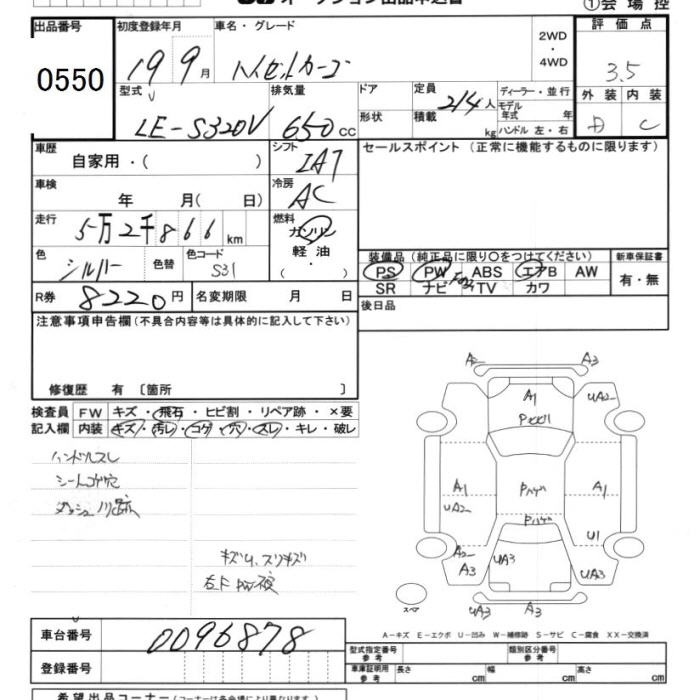 オークション出品申込書
①会場控
出品番号
0550
初度登録年月
19 9月
車名・グレード
ハイゼットカーゴ
2WD
・
4WD
評価点
3.5
外装 内装
D C
型式
LE-S320V
排気量
650cc
ドア
形状
定員
2/4人
積載
kg
ディーラー・並行
モデル年式 年
ハンドル 左・右
車歴
自家用・( )
シフト
IAT
冷房
AC
セールスポイント (正常に機能するものに限ります)
車検
年 月( 日)
走行
5万2千866km
燃料
ガソリン
・
軽油
・
( )
色
シルバー
色替
色コード
S31
R券
8220円
名変期限 月 日
装備品 (純正品に限り〇をつけてください)
PS PW ABS エアB AW
SR ナビ TV カワ
新車保証書
有・無
後日品
注意事項申告欄(不具合内容等は具体的に記入して下さい)
修復歴 有 〔箇所 〕
検査員記入欄
FW キズ・飛石・ヒビ割・リペア跡・×要
内装 キズ・汚レ・コゲ・穴・スレ・キレ・破レ
ハンドルスレ
シートコゲ穴
ダッシュノリ跡
キズ凹、スリキズ
右F PW
A2 A3
A1
UA2
A1
UA2
Pハゲ
A1
Pハゲ
U1
A2
A3
UA3
UA3
A3
スペア
UA3 A3
A-キズ E-エクボ U-凹み W-補修跡 S-サビ C-腐食 XX-交換済
車台番号
0096878
登録番号
型式指定番号 参考
類別区分番号 参考
車庫証明用 参考
長さ cm
幅 cm
高さ cm
希望出品コーナー (コーナーは各会場により異なります)